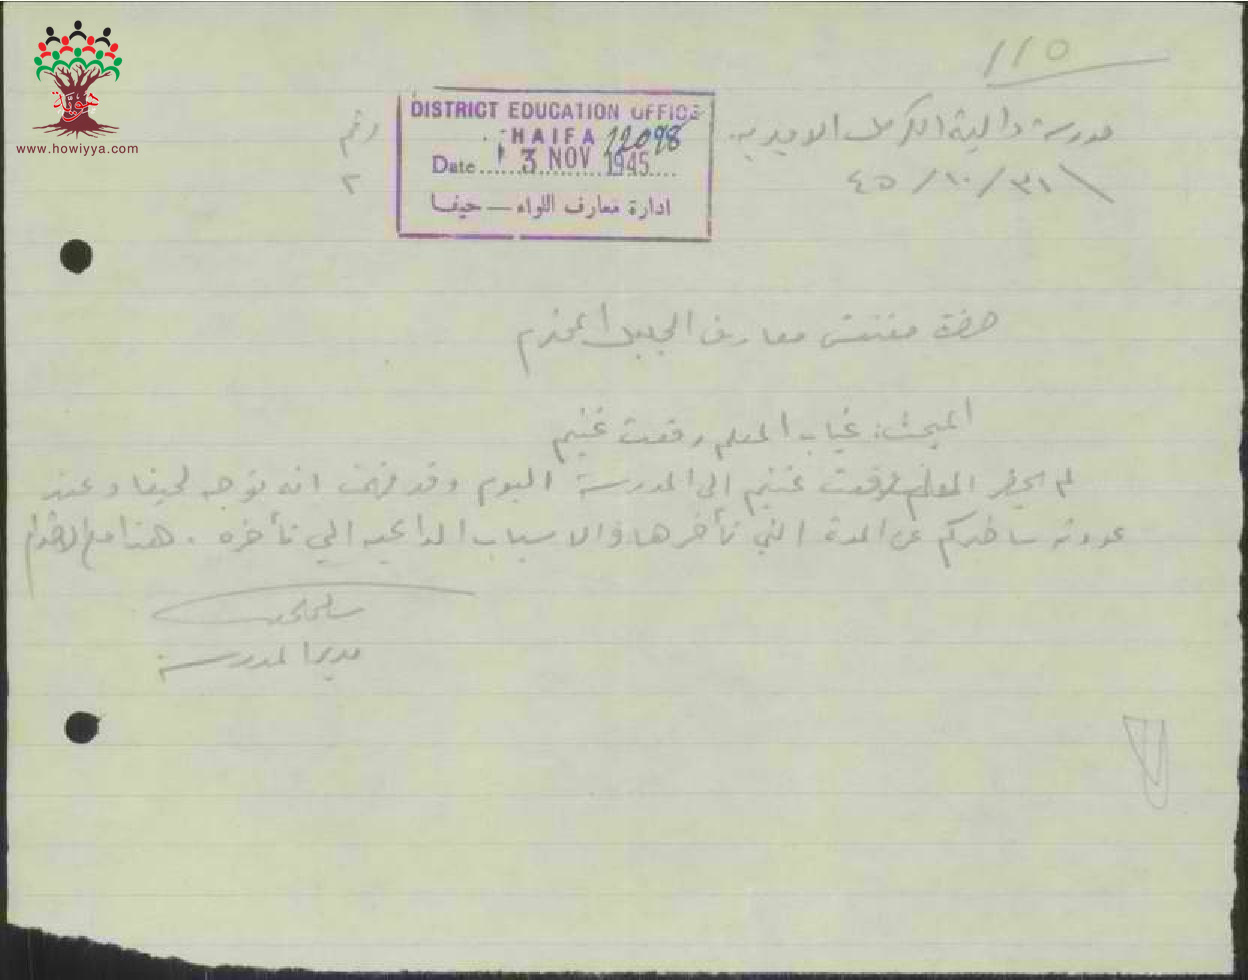 115
مدرسة دالية الكرمل الاميرية
رقم
٣١/١٠/٤٥
٢
DISTRICT EDUCATION OFFICE
HAIFA 12098
Date 3 NOV 1945
ادارة معارف اللواء — حيفا
هوية
www.howiyya.com
حضرة مفتش معارف الجليل المحترم
المبحث: غياب المعلم رفعت غنيم
لم يحضر المعلم رفعت غنيم الى المدرسة اليوم وقد فهمت انه توجه لحيفا وعند
عودته ساخبركم عن المدة التي تأخرها والاسباب الداعية الى تأخره. هذا مع الاحترام
مدير المدرسة